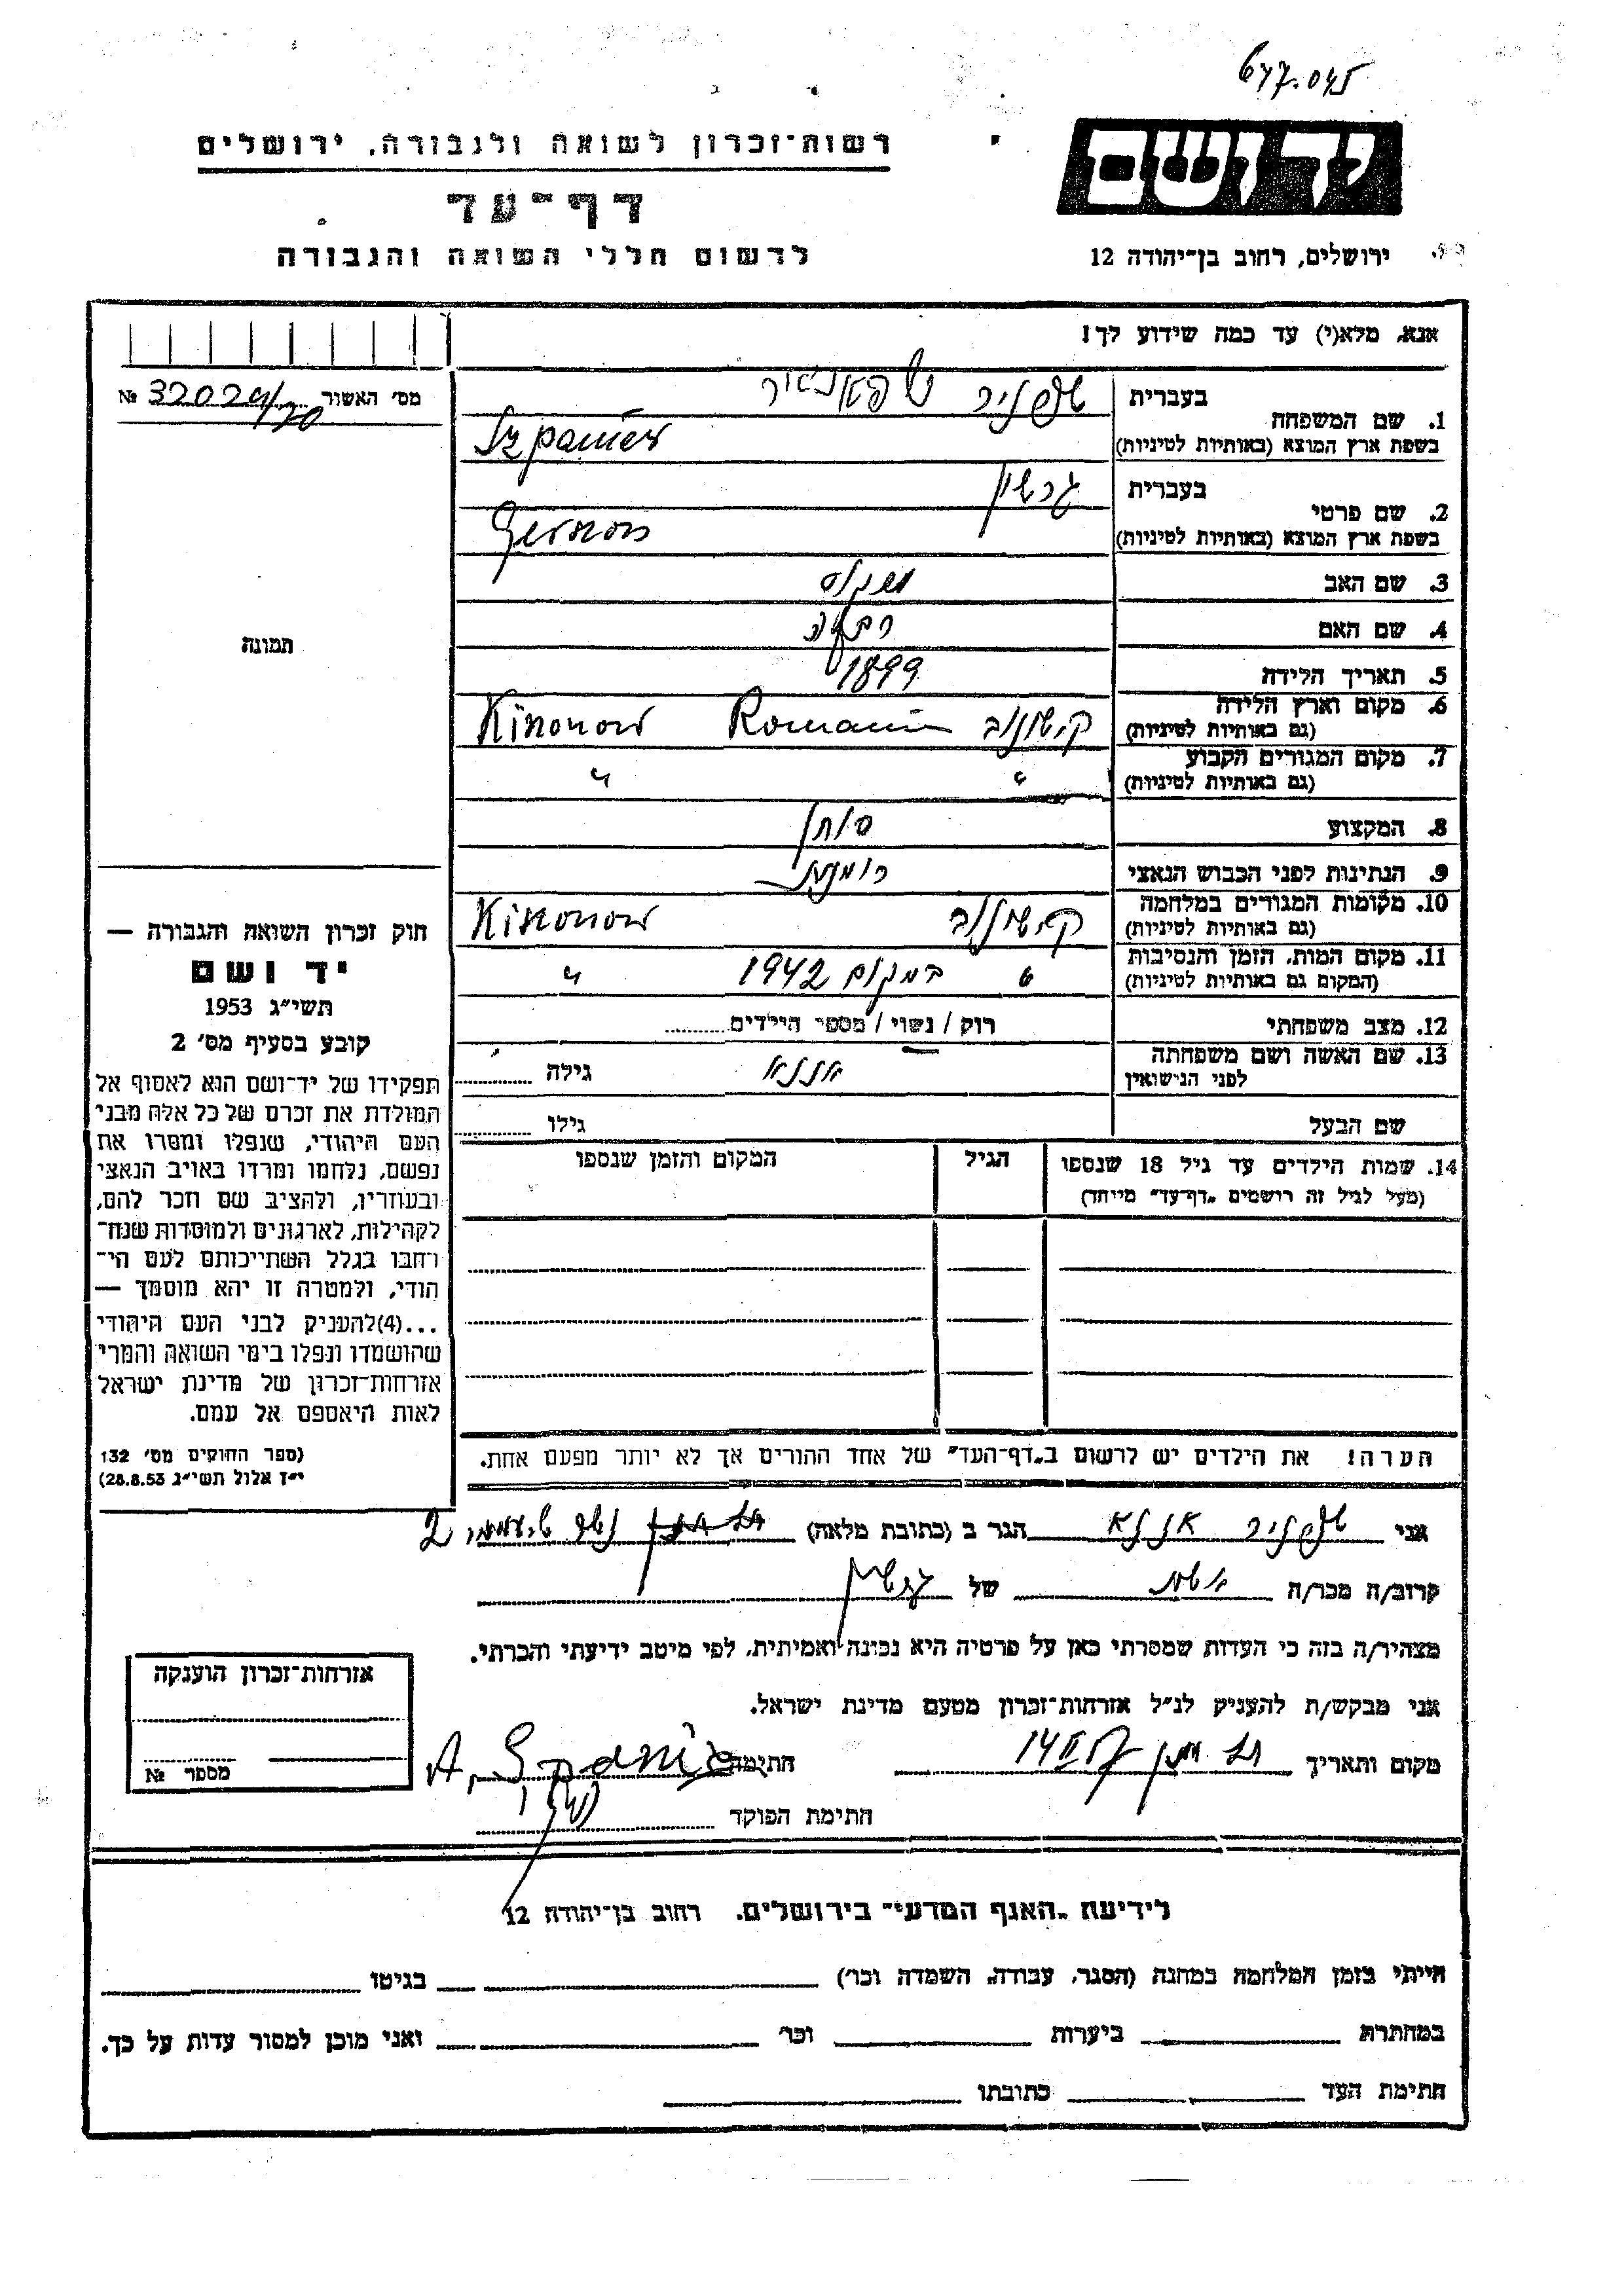 647.045
יד ושם
רשות־זכרון לשואה ולגבורה, ירושלים
דף־עד
לרשום חללי השואה והגבורה
ירושלים, רחוב בן־יהודה 12
אנא, מלא(י) עד כמה שידוע לך!
מס׳ האשור № 32024/70
1. שם המשפחה
בעברית שפניר שפאניר
בשפת ארץ המוצא (באותיות לטיניות) Szpanier
2. שם פרטי
בעברית גרשון
בשפת ארץ המוצא (באותיות לטיניות) Gerson
3. שם האב
4. שם האם
5. תאריך הלידה 1899
6. מקום וארץ הלידה קישונוב Romania Kisonow
(גם באותיות לטיניות)
7. מקום המגורים הקבוע " "
(גם באותיות לטיניות)
8. המקצוע סוחר
9. הנתינות לפני הכבוש הנאצי רומנית
10. מקומות המגורים במלחמה קישונוב Kisonow
(גם באותיות לטיניות)
11. מקום המות, הזמן והנסיבות " במקום 1942 "
(המקום גם באותיות לטיניות)
12. מצב משפחתי רוק / נשוי / מספר הילדים
13. שם האשה ושם משפחתה אננא גילה
לפני הנישואין
שם הבעל גילו
14. שמות הילדים עד גיל 18 שנספו הגיל המקום והזמן שנספו
(מעל לגיל זה רושמים „דף־עד" מייחד)
הערה! את הילדים יש לרשום ב„דף־העד" של אחד ההורים אך לא יותר מפעם אחת.
תמונה
חוק זכרון השואה והגבורה —
יד ושם
תשי״ג 1953
קובע בסעיף מס׳ 2
תפקידו של יד־ושם הוא לאסוף אל
המולדת את זכרם של כל אלה מבני
העם היהודי, שנפלו ומסרו את
נפשם, נלחמו ומרדו באויב הנאצי
ובעוזריו, ולהציב שם וזכר להם,
לקהילות, לארגונים ולמוסדות שנח־
רחבו בגלל השתייכותם לעם הי־
הודי, ולמטרה זו יהא מוסמך —
...(4)להעניק לבני העם היהודי
שהושמדו ונפלו בימי השואה והמרי
אזרחות־זכרון של מדינת ישראל
לאות היאספם אל עמם.
(ספר החוקים מס׳ 132
י״ז אלול תשי״ג 28.8.53)
אני שפניר אננא הגר ב (כתובת מלאה) 2
קרוב/ה מכר/ה אשת של גרשון
מצהיר/ה בזה כי העדות שמסרתי כאן על פרטיה היא נכונה ואמיתית, לפי מיטב ידיעתי והכרתי.
אני מבקש/ת להעניק לנ״ל אזרחות־זכרון מטעם מדינת ישראל.
מקום ותאריך 14 II 57 חתימה A. Szpanie
חתימת הפוקד
אזרחות־זכרון הוענקה
מספר №
לידיעת „האגף המדעי" בירושלים, רחוב בן־יהודה 12
הייתי בזמן המלחמה במחנה (הסגר, עבודה, השמדה וכו׳) בגיטו
במחתרת ביערות וכו׳ ואני מוכן למסור עדות על כך.
חתימת העד כתובתו